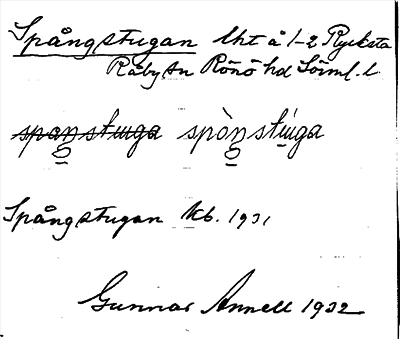 Spångstugan lht å 1-2 Rycksta
Råby sn Rönö hd Söml. l.
spaŋstuga spòŋstúga
Spångstugan kb. 1931
Gunnar Annell 1932